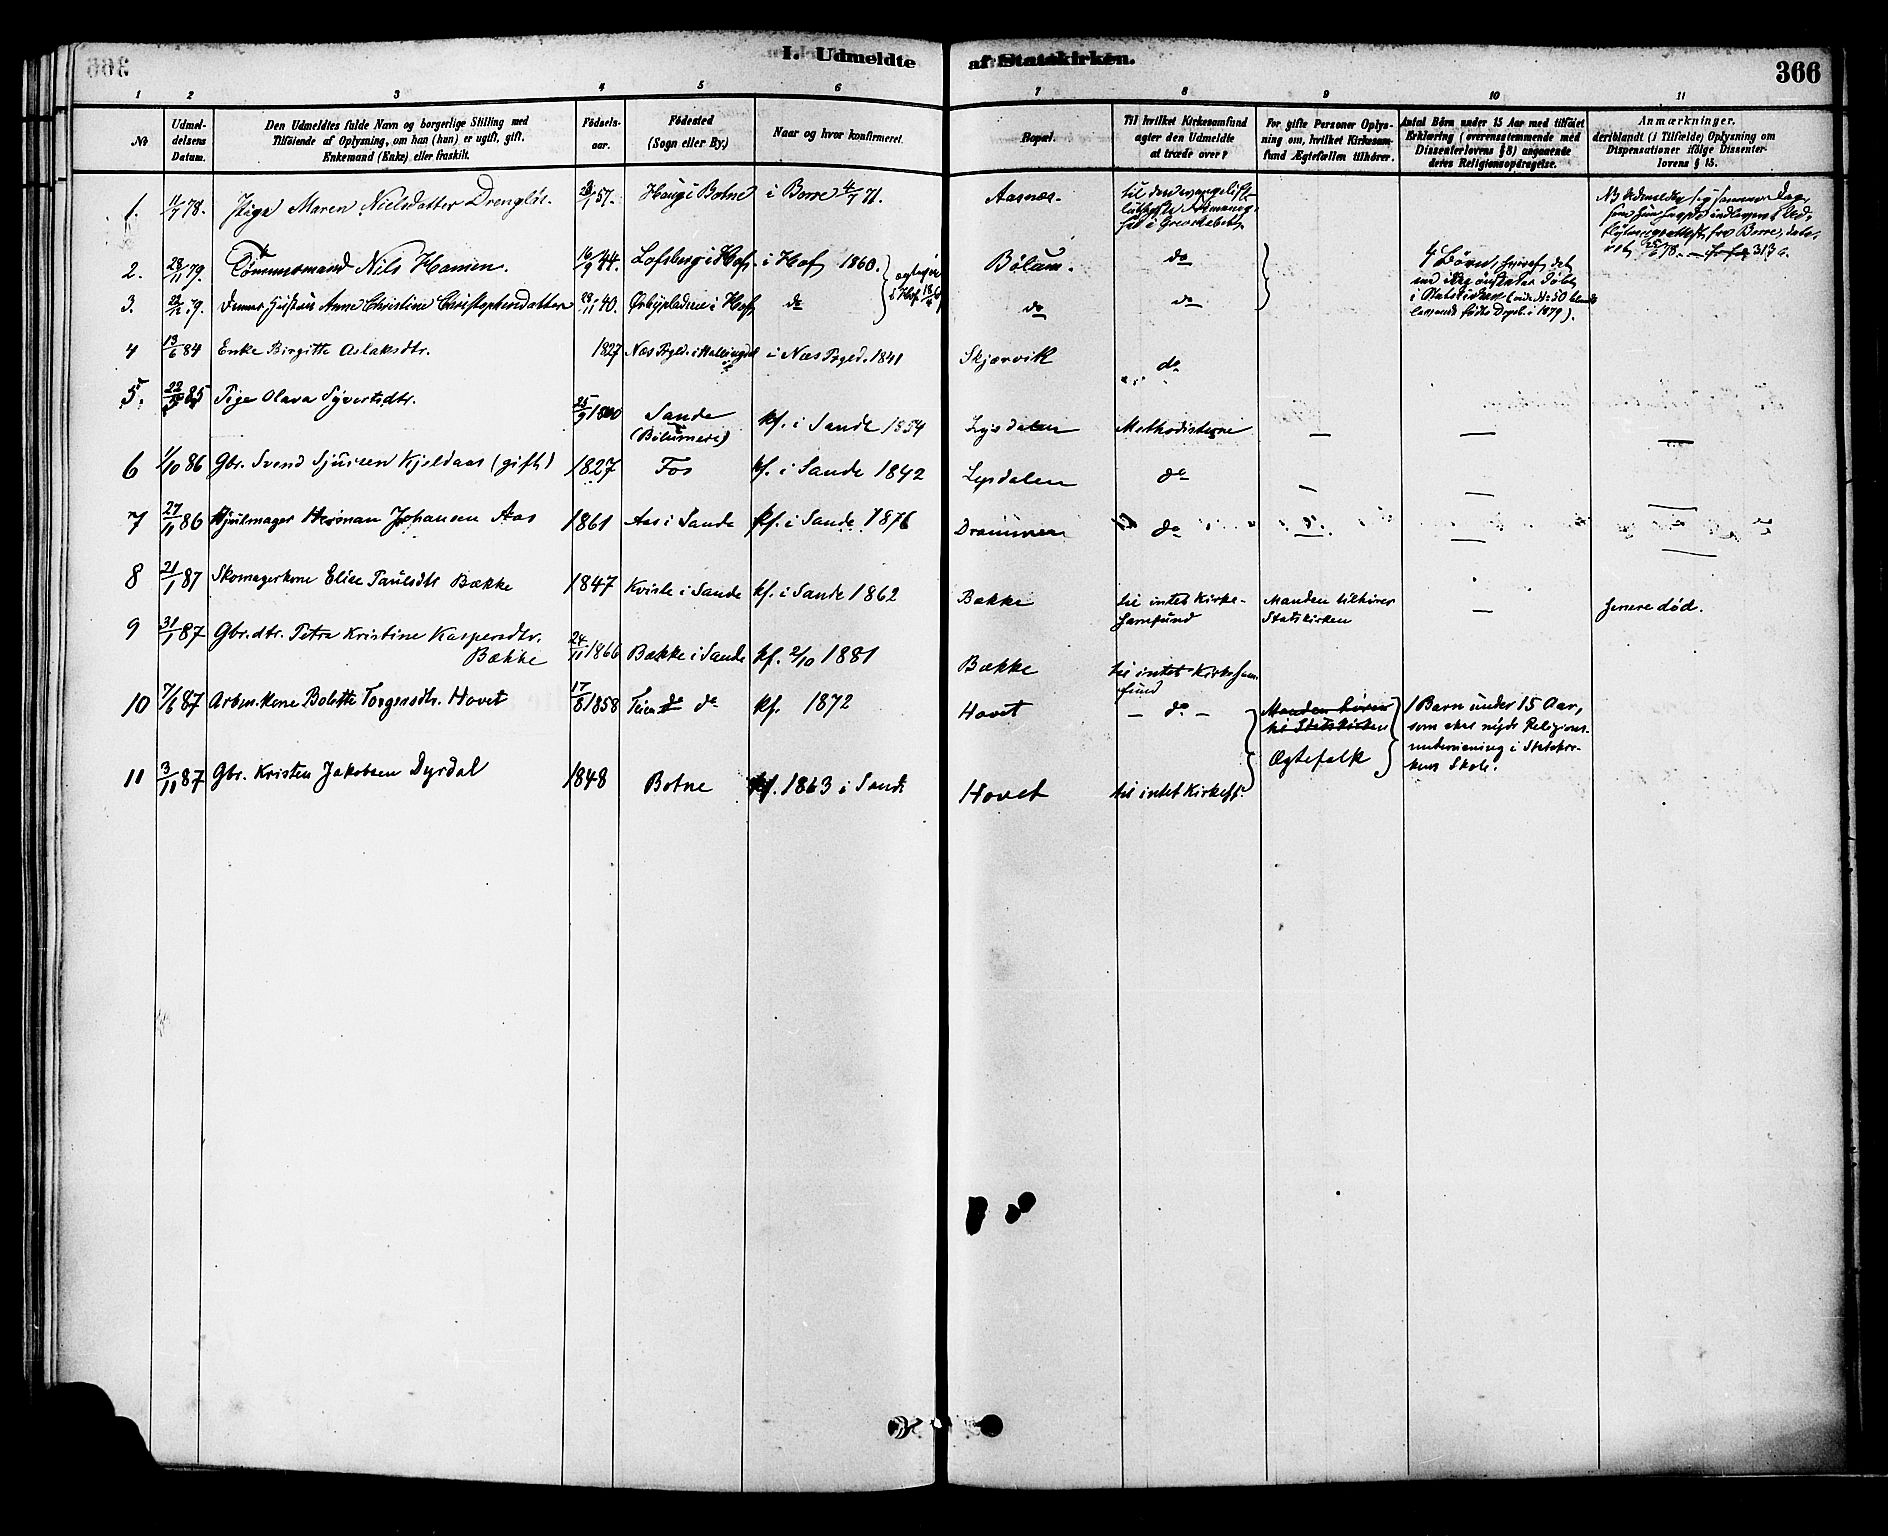 I. Udmeldte af Statskirken.
366
1 2 3 4 5 6 7 8 9 10 11
No
Udmel-
delsens
Datum.
Den Udmeldtes fulde Navn og borgerlige Stilling med
Tilføiende af Oplysning, om han (hun) er ugift, gift,
Enkemand (Enke) eller fraskilt.
Fødsels-
aar.
Fødested
(Sogn eller By.)
Naar og hvor konfirmeret.
Bopæl.
Til hvilket Kirkesamfund
agter den Udmeldte
at træde over?
For gifte Personer Oplys-
ning om, hvilket Kirkesam-
fund Ægtefællen tilhører.
Antal Børn under 15 Aar med tilføiet
Erklæring (overensstemmende med
Dissenterlovens § 8) angaaende
deres Religionsopdragelse.
Anmærkninger,
deriblandt (i Tilfælde) Oplysning om
Dispensationer ifølge Dissenter-
lovens § 15.
1. 11/7 78. Pige Maren Nielsdatter 57. Houg i Botne i Borre 4/7 71. Aasnæs.
2. 28/11 79. Tømmermand Nils Hansen. 16/9 44. Lofsberg i Hof i Hof 1860. Bølum. do
3. Anne Christine Christophersdatter 40. i Hof do do do
4 13/6 84 Enke Birgitte Aslaksdtr. 1827 Næs Prgld. i Hallingdal i Næs Prgld. 1841 Skjærvik do
5. 85 Pige Olava Syvertsdtr.
25/9 Sande
(Bølumeie) kf. i Sande 1854 Lysdalen Methodisterne — — —
6 1/10 86 Gbr. Svend Sjursen Kjeldaas (gift) 1827 Fos kf. i Sande 1842 Lysdalen do — — —
7 27/11 86 Hjulmager Herman Johansen Aas 1861 Aas i Sande kf. i Sande 1876 Drammen do — — —
8 21/1 87 Skomagerkone Elise Paulsdtr Bække 1847 Kviste i Sande kf. i Sande 1862 Bække til intet Kirke-
samfund
Manden tilhører
Statskirken
—
senere død.
9 31/1 87 Gbr.dtr. Petra Kristine Kaspersdtr.
Bække 24/11 1866 Bække i Sande kf. 2/10 1881 Bække til intet Kirkesam-
fund
10 7/6 87 Arbm.kone Bolette Torgersdtr. Hovet 17/8 1858 do kf. 1872 Hovet — do —
Manden hører
til Statskirken
Ægtefolk
1 Barn under 15 Aar,
som skal nyde Religions-
undervisning i Statskir-
kens Skole.
11 3/11 87 Gbr. Kristen Jakobsen Dyrdal 1848 Botne kf. 1863 i Sande Hovet til intet Kirkesf.